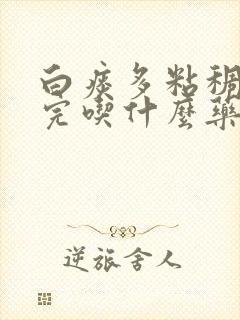 白痰多粘稠
完喫什麽藥
逆旅舍人